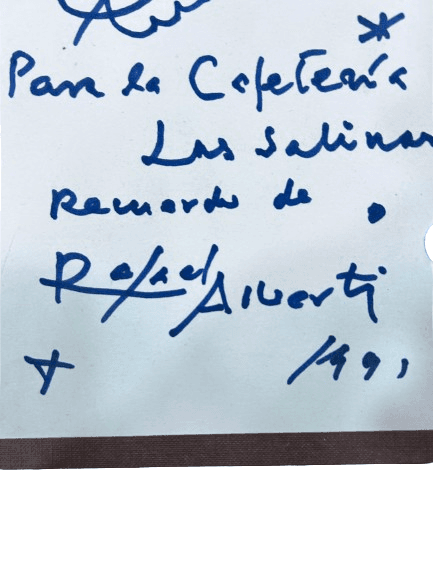 Para la Cafetería
Las Salinas
Recuerdo de
Rafael Alberti
1991